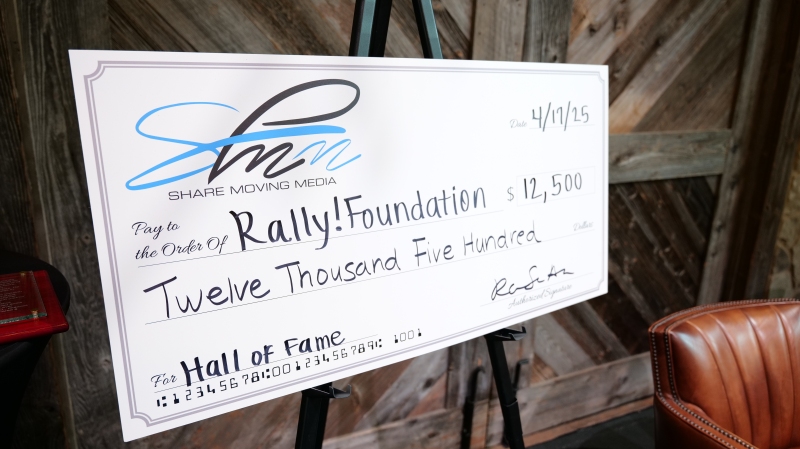 SHARE MOVING MEDIA
Date 4/17/25
Pay to
the Order Of Rally! Foundation $ 12,500
Twelve Thousand Five Hundred Dollars
Authorized Signature
For Hall of Fame
⑆123456781⑆00123456789⑆ 1001